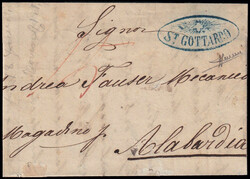 Signor
ST GOTTARDO
Andrea Fauser Mecanico
Magadino p
Alabardia